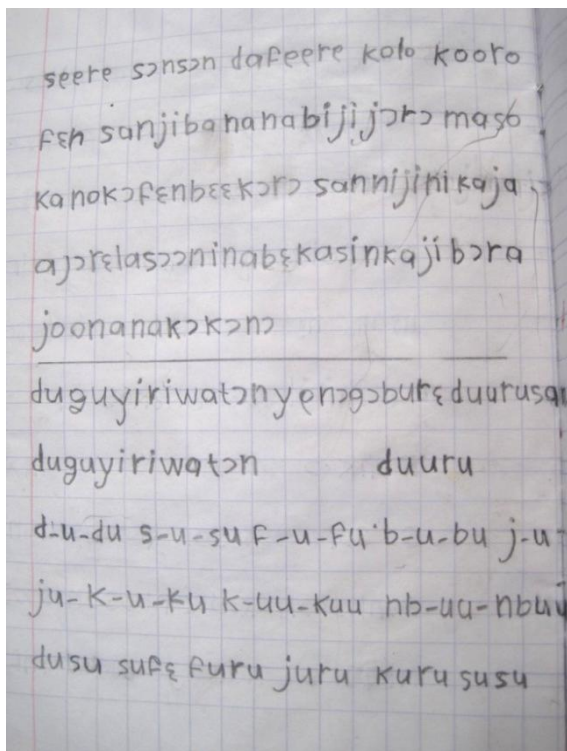 seere sɔnsɔn dafeere kolo kooro
fɛn sanjibananabijijɔrɔ masó
kanokɔfɛnbɛɛkɔrɔ sannijinikaja
ajɔrɛlasɔɔninabɛkasinkajibɔra
joonanakɔkɔnɔ
duguyiriwatɔnyenɔgɔburɛduurusan
duguyiriwatɔn duuru
d-u-du s-u-su f-u-fu b-u-bu j-u-
ju-k-u-ku k-uu-kuu nb-uu-nbuu
dusu sufɛ furu juru kuru susu